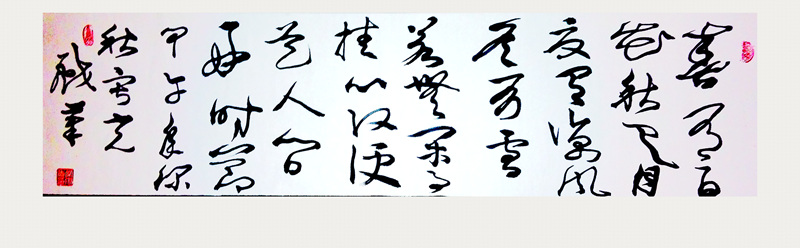 春有百
花秋有月
夏有凉风
冬有雪
若無闲事
挂心头便
是人间
好时節
甲午年深
秋
戲筆